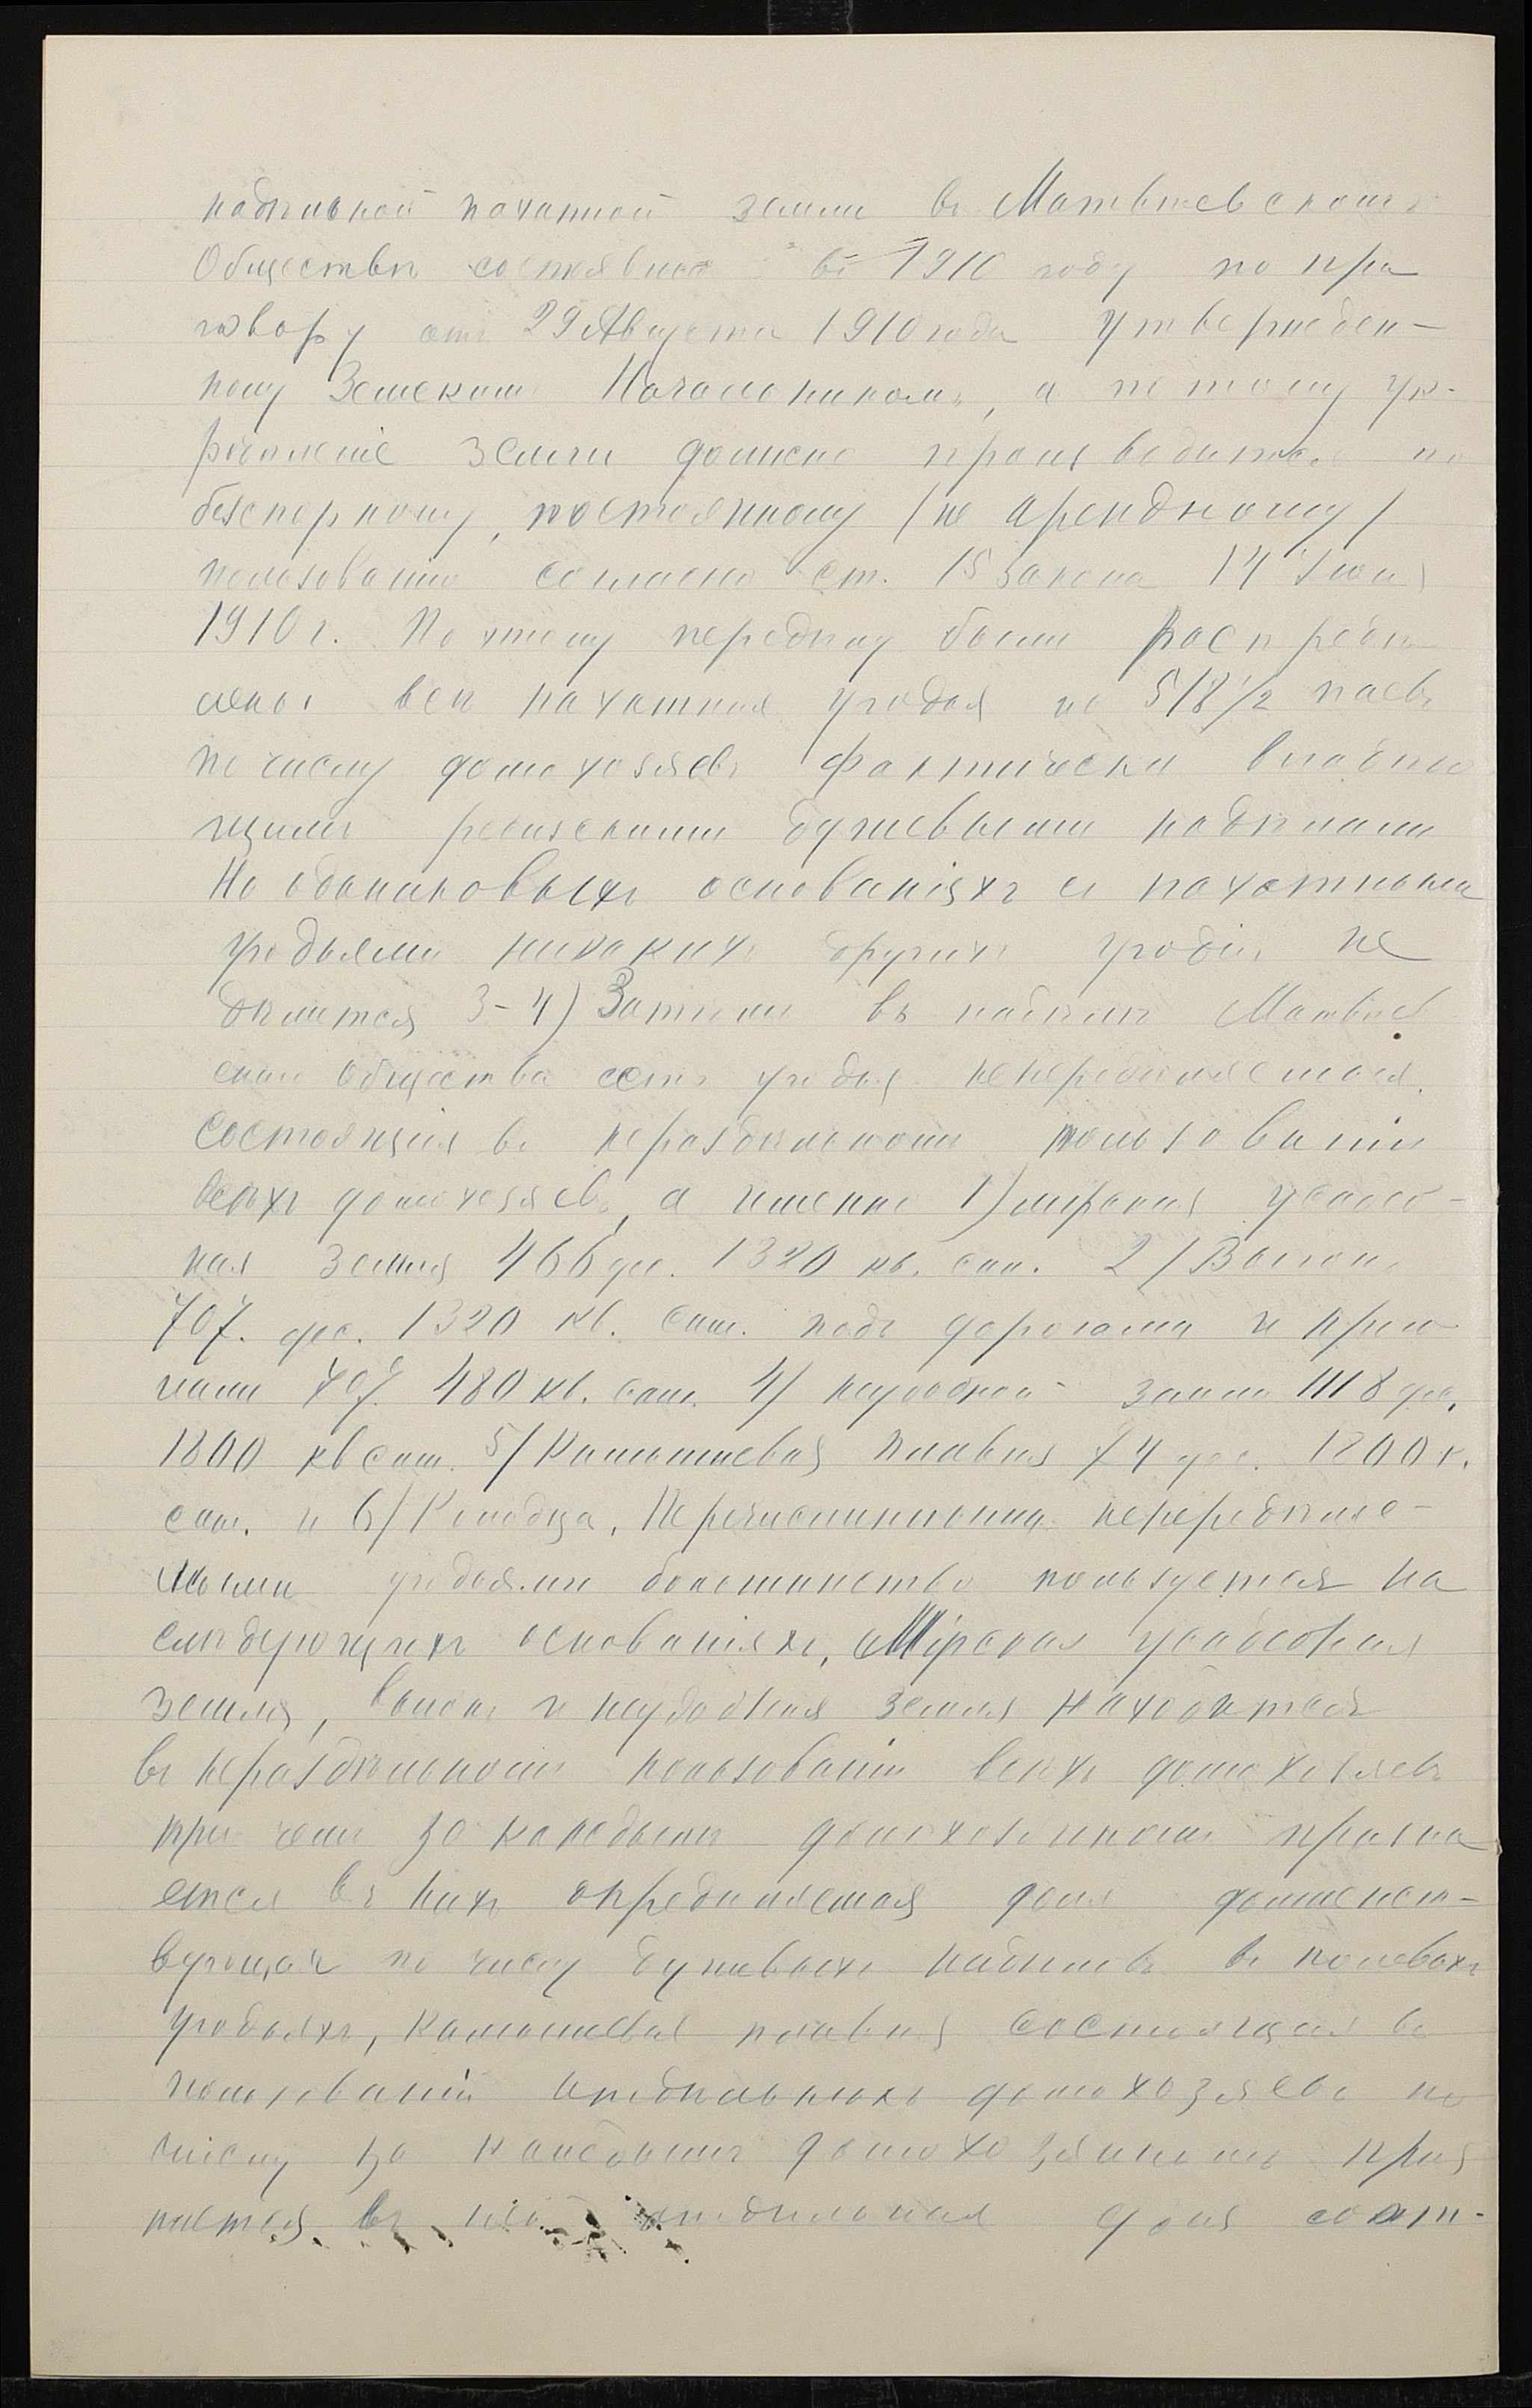 надѣльной пахатной земли въ Матвѣевскомъ
Обществѣ состоялся въ 1910 году по при
говору отъ 29 Августа 1910 года утвержден-
ному Земскимъ Начальникомъ, а потому ук-
рѣпленіе земли должно производиться по
безспорному, постоянному /не арендному/
пользованію согласно ст. 15 закона 14 Іюня
1910 г. По этому передѣлу были распредѣ
лены всѣ пахатныя угодья на 518 1/2 паевъ
по числу домохозяевъ фактически владѣю
щими ревизскими душевыми надѣлами
На одинаковыхъ основаніяхъ съ пахатными
угодьями никакихъ другихъ угодій не
дѣлится 3-4) Затѣмъ въ надѣлѣ Матвѣев
скаго Общества есть угодья непередѣляемыя,
состоящія въ нераздѣльномъ пользованіи
всѣхъ домохозяевъ, а именно 1) мірская усадеб-
ная земля 466 дес. 1320 кв. саж. 2/ Выгонъ
707. дес. 1320 кв. саж. подъ дорогами и прого
нами 707. 480 кв. саж. 4/ неудобной земли 1118 дес.
1800 кв саж. 5/ Камышевая плавня 74 дес. 1200 к.
саж. и 6/ Колодца. Перечисленными непередѣляе-
мыми угодьями большинство пользуется на
слѣдующихъ основаніяхъ, Мірская усадебная
земля, выгонъ и неудобная земля находится
въ нераздѣльномъ пользованіи всѣхъ домохозяевъ
при чемъ за каждымъ домохозяиномъ призна
ется въ нихъ опредѣляемая доля долженст-
вующая по числу душевыхъ надѣловъ въ полевыхъ
угодьяхъ, камышевая плавня состоящая въ
пользованіи отдѣльныхъ домохозяевъ по
числу за каждымъ домохозяиномъ приз
нается въ ней отдѣльная доля соот-